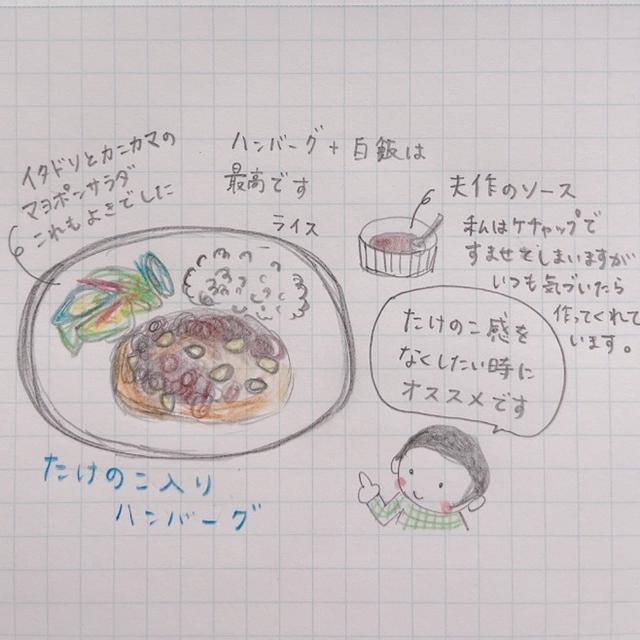 イタドリとカニカマの
マヨポンサラダ
これもよきでした
ハンバーグ+白飯は
最高です
ライス
夫作のソース
私はケチャップで
すませてしまいますが
いつも気づいたら
作ってくれて
います。
たけのこ感を
なくしたい時に
オススメです
たけのこ入り
ハンバーグ